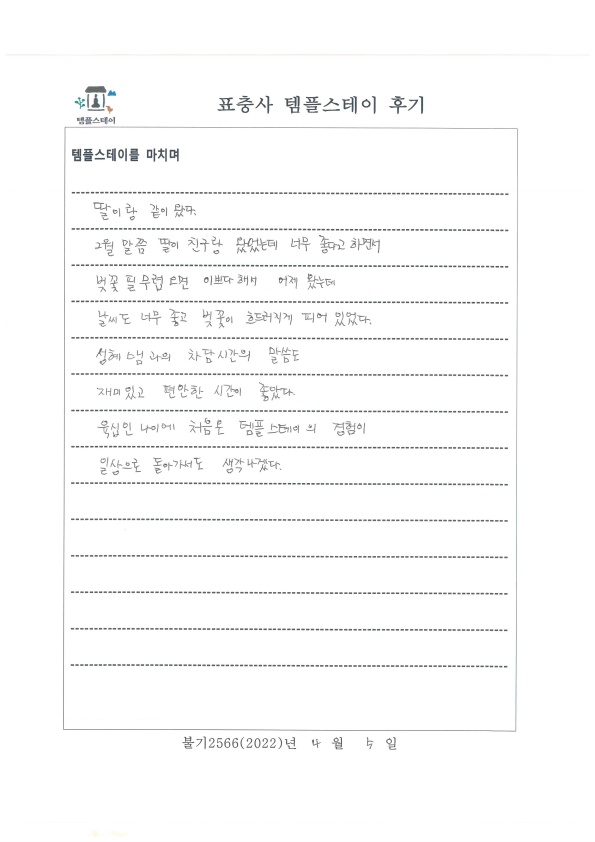 템플스테이
표충사 템플스테이 후기
템플스테이를 마치며
딸이랑 같이 왔다.
2월 말쯤 딸이 친구랑 왔었는데 너무 좋다고 하면서
벚꽃 필무렵 오면 이쁘다해서 어제 왔는데
날씨도 너무 좋고 벚꽃이 흐드러지게 피어 있었다.
스님과의 차담시간의 말씀도
재미있고 편안한 시간이 좋았다.
육십인 나이에 처음온 템플스테이의 경험이
일상으로 돌아가서도 생각나겠다.
불기2566(2022)년 4 월 5 일